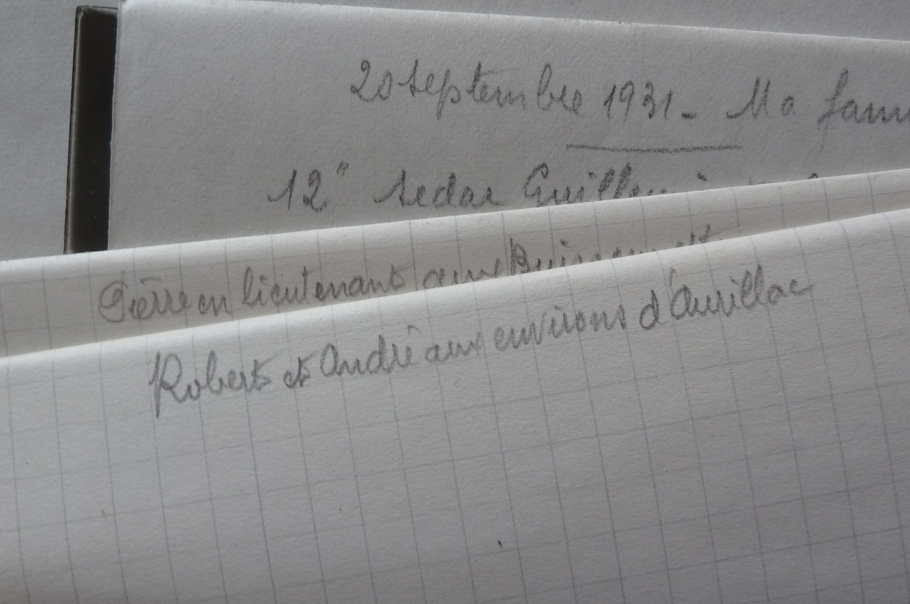 20 septembre 1931 - Ma
12"
Pierre en lieutenant aux
Robert et André aux environs d'Aurillac